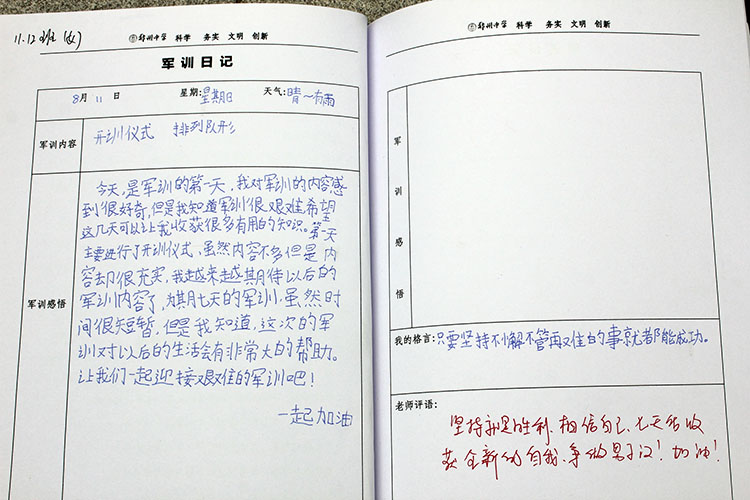 11.12班(女)
郑州中学 科学 务实 文明 创新
军训日记
8月11日 星期:星期日 天气:晴~有雨
军训内容
开训仪式 排列队形
军训感悟
今天,是军训的第一天,我对军训的内容感
到很好奇,但是我知道军训很艰难,希望
这几天可以让我收获很多有用的知识。第一天
主要进行了开训仪式,虽然内容不多但是内
容却很充实,我越来越期待以后的
军训内容了,为期七天的军训,虽然时
间很短暂,但是我知道,这次的军
训对以后的生活会有非常大的帮助。
让我们一起迎接艰难的军训吧!
一起加油
郑州中学 科学 务实 文明 创新
军训感悟
我的格言:只要坚持不懈不管再难的事就都能成功。
老师评语:
坚持就是胜利,相信自己,七天后收
获全新的自我,争做男子汉!加油!